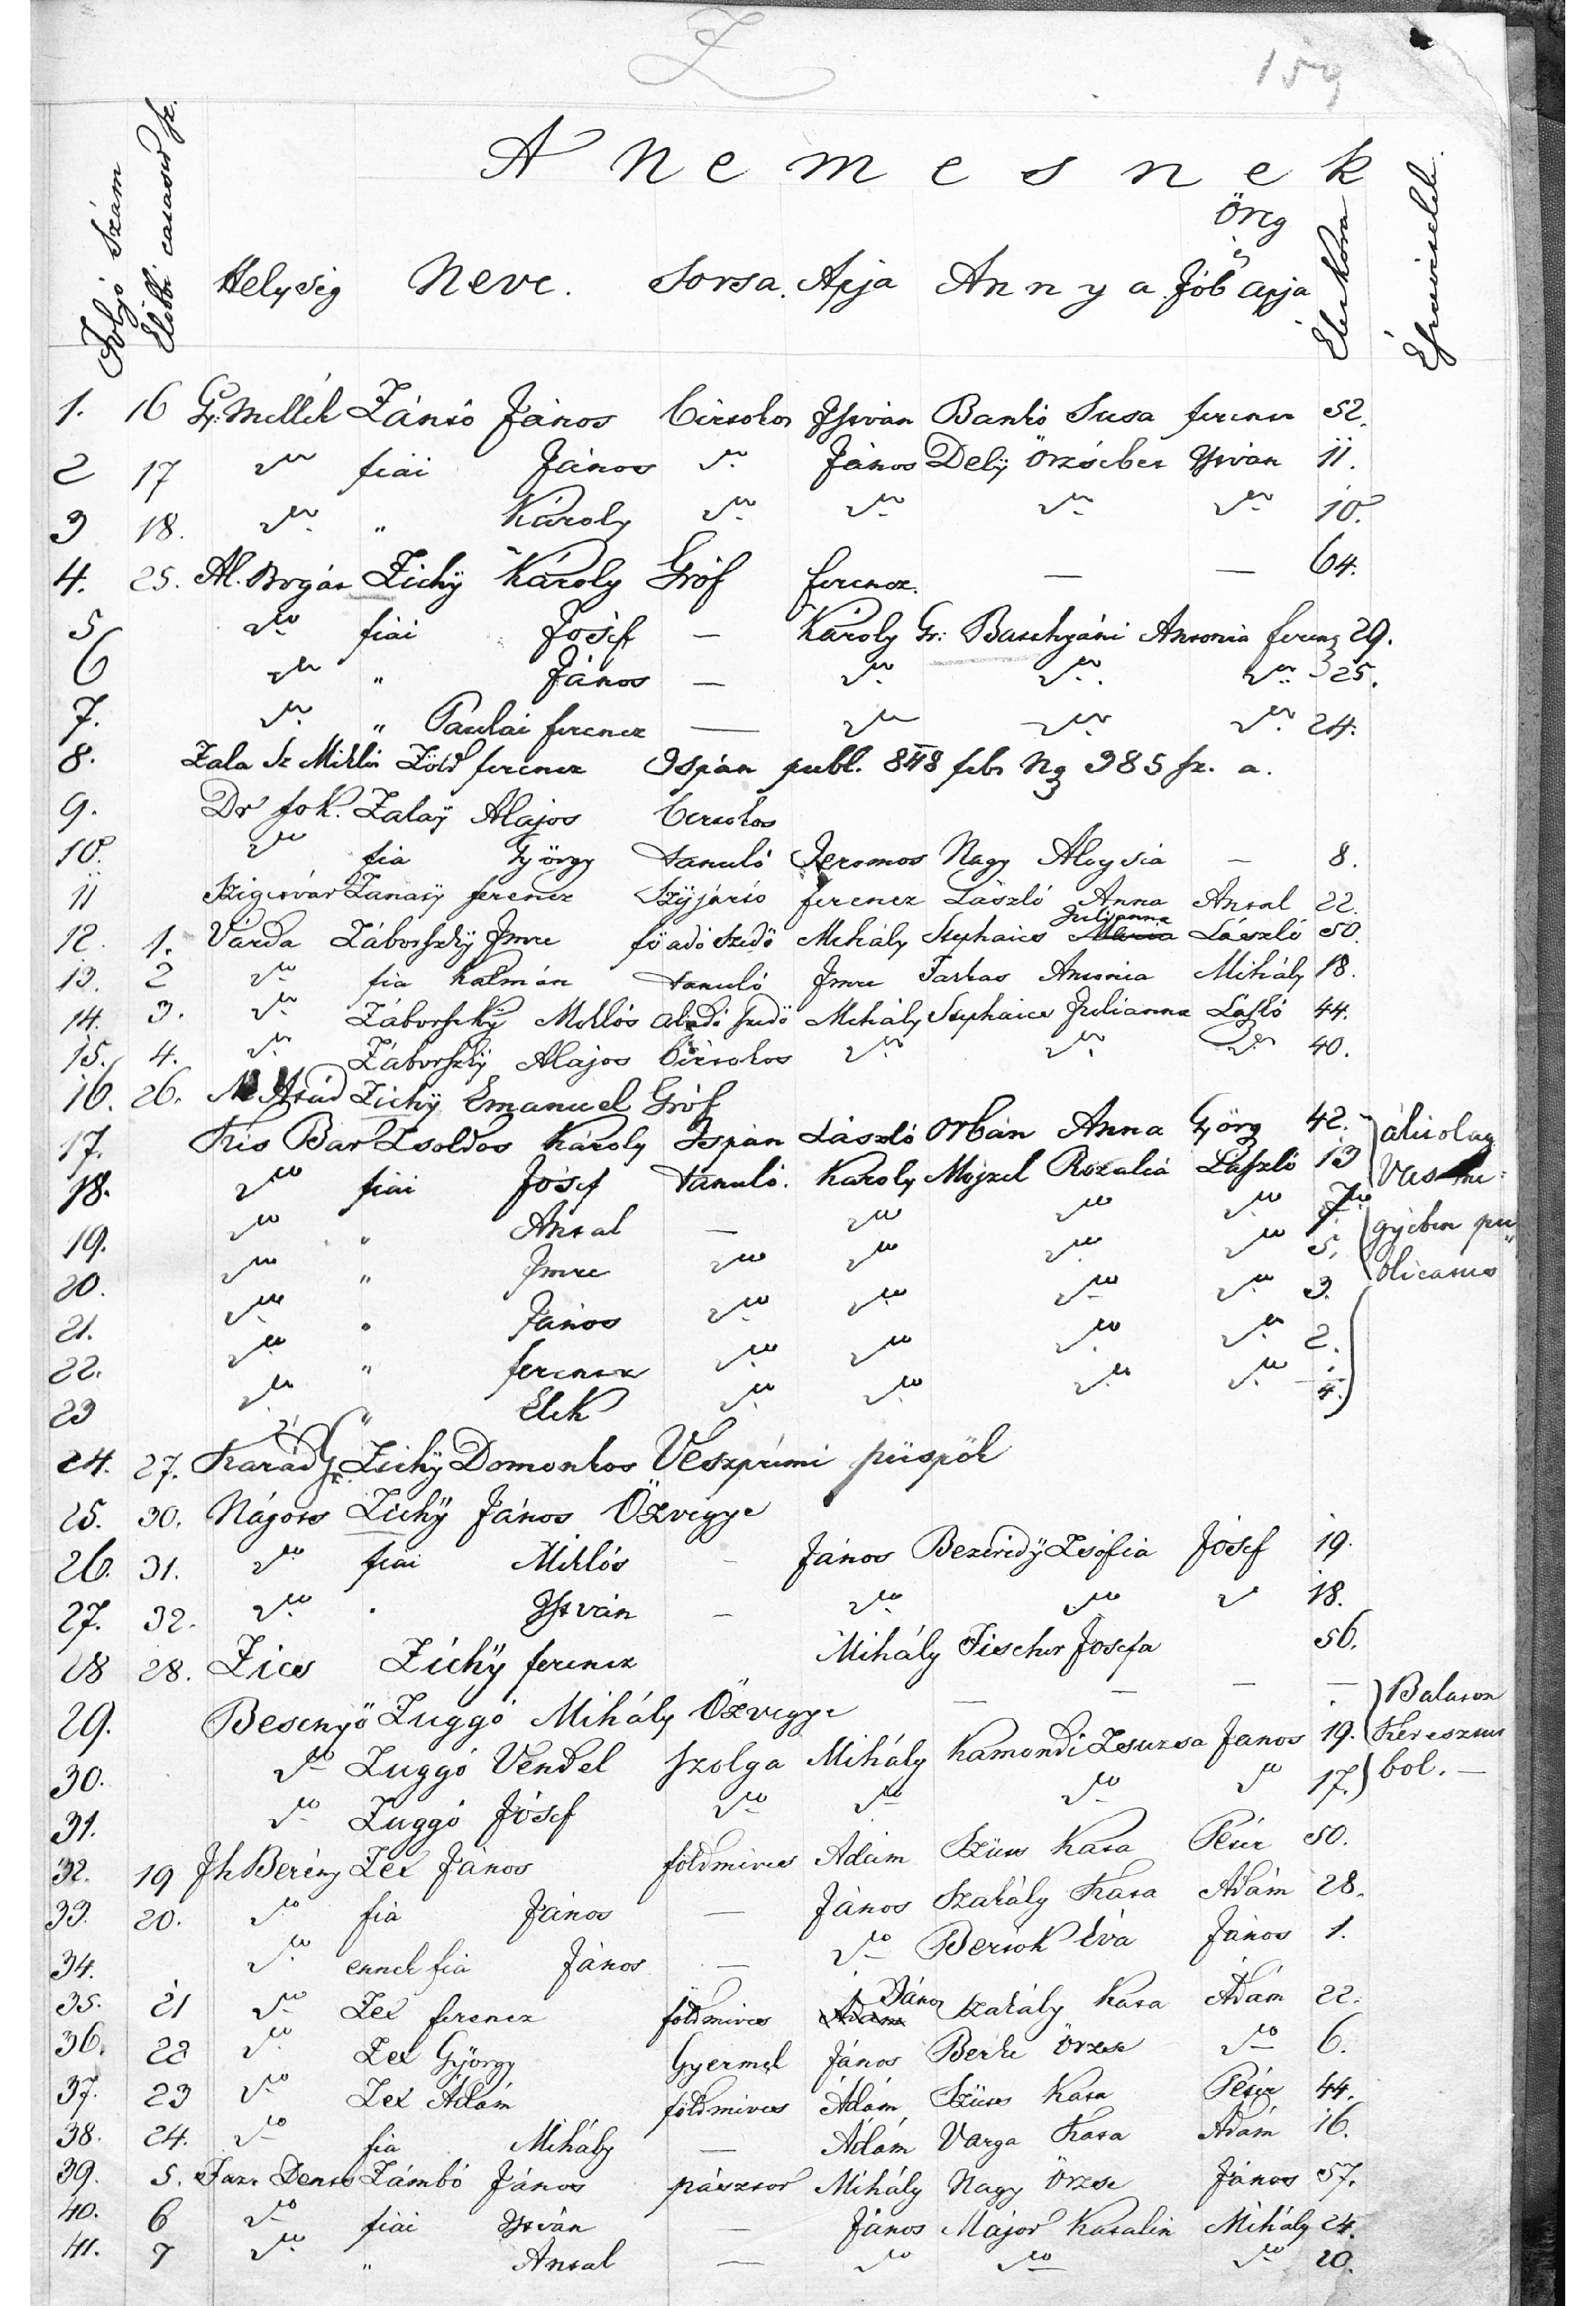 Z
159
A Nemesnek
Folyó Szám
Előbbi családi sz.
Helység Neve. Sorsa. Apja Annya Öreg s Jób apja
Élet Kora
Észrevételek.
1. 16 Gy: Mellék Zánió János birtokos István Bankó Susa ferencz 52.
2 17 dto fiai János dto János Delÿ Örzsébet István 11.
3 18. dto " Károly dto dto dto dto 10.
4. 25. Al. Bogát Zichÿ Károly Gróf ferencz. — — 64.
5 dto fiai Jósef — Károly Gr: Batthyáni Antonia ferencz 29.
6 dto " János — dto dto dto 25.
7. dto " Paulai ferencz — dto dto dto 24.
8. Zala Sz Miklós Zöld ferencz Ispán publ. 848 feb. 985 sz. a.
9. Dr fok. Zalaÿ Alajos birtokos
10. dto fia György tanuló Jeromos Nagy Aloysia — 8.
11 Szigetvár Zanaÿ ferencz Szÿjártó ferencz László Anna Antal 22.
12. 1. Várda Záborszkÿ Imre fő adó szedő Mihály Stephaics Maria Julianna László 50.
13. 2 dto fia Kálmán tanuló Imre Farkas Antonia Mihály 18.
14. 3. dto Záborszkÿ Miklós aladó szedő Mihály Stephaics Julianna László 44.
15. 4. dto Záborszkÿ Alajos birtokos dto dto dto 40.
16. 26. Zichÿ Emanuel Gróf
17. Kis Bar Zsoldos Károly Ispán László Orbán Anna Györg 42. álitolag
18. dto fiai Jósef tanuló. Károly Mojzel Rozalia László 13 Vas me:
19. dto " Antal — dto dto dto 7. gyében pu
20. dto " Imre dto dto dto dto 5. blicatus
21. dto " János dto dto dto dto 3.
22. dto " ferencz dto dto dto dto 2.
23 dto " Elek dto dto dto dto ¼.
24. 27. Karád Gr. Zichÿ Domonkos Veszprimi püspök
25. 30. Nágocs Zichÿ János Özvegye
26. 31. dto fiai Miklós — János Bezerédÿ Zsófia Jósef 19.
27. 32. dto " István — dto dto dto 18.
28 28. Zics Zichÿ ferencz Mihály Fischer Josefa 56.
29. Besenyő Zuggó Mihály Özvegye — — — — Balaton
30. dto Zuggó Vendel szolga Mihály Kamondi Zsuzsa Janos 19. Keresztur
31. dto Zuggó Jósef dto dto dto dto 17. bol. —
32. 19 Jh Berény Zex János földmives Ádám Szücs Kata Péter 50.
33. 20. dto fia János — János Szakály Kata Ádám 28.
34. dto ennek fia János — dto Bertók Éva János 1.
35. 21 dto Zex ferencz földmives Ádám János Szakály Kata Ádám 22.
36. 22 dto Zex György Gyermek János Berke Örzse dto 6.
37. 23 dto Zex Ádám földmives Ádám Szücs Kata Péter 44.
38. 24. dto fia Mihály — Ádám Varga Kata Ádám 16.
39. 5. Zámbó János pásztor Mihály Nagy Örzse János 57.
40. 6 dto fiai István — János Major Katalin Mihály 24.
41. 7 dto " Antal — dto dto dto 20.